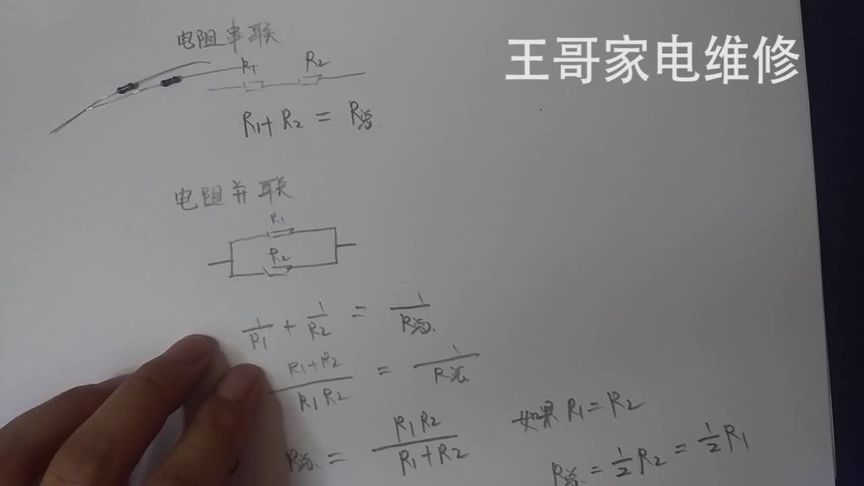 王哥家电维修
电阻串联
R1 R2
R1+R2=R总
电阻并联
R1
R2
1/R1 + 1/R2 = 1/R总
R1+R2/R1R2 = 1/R总
R总 = R1R2/R1+R2
如果 R1=R2
R总=1/2R2=1/2R1